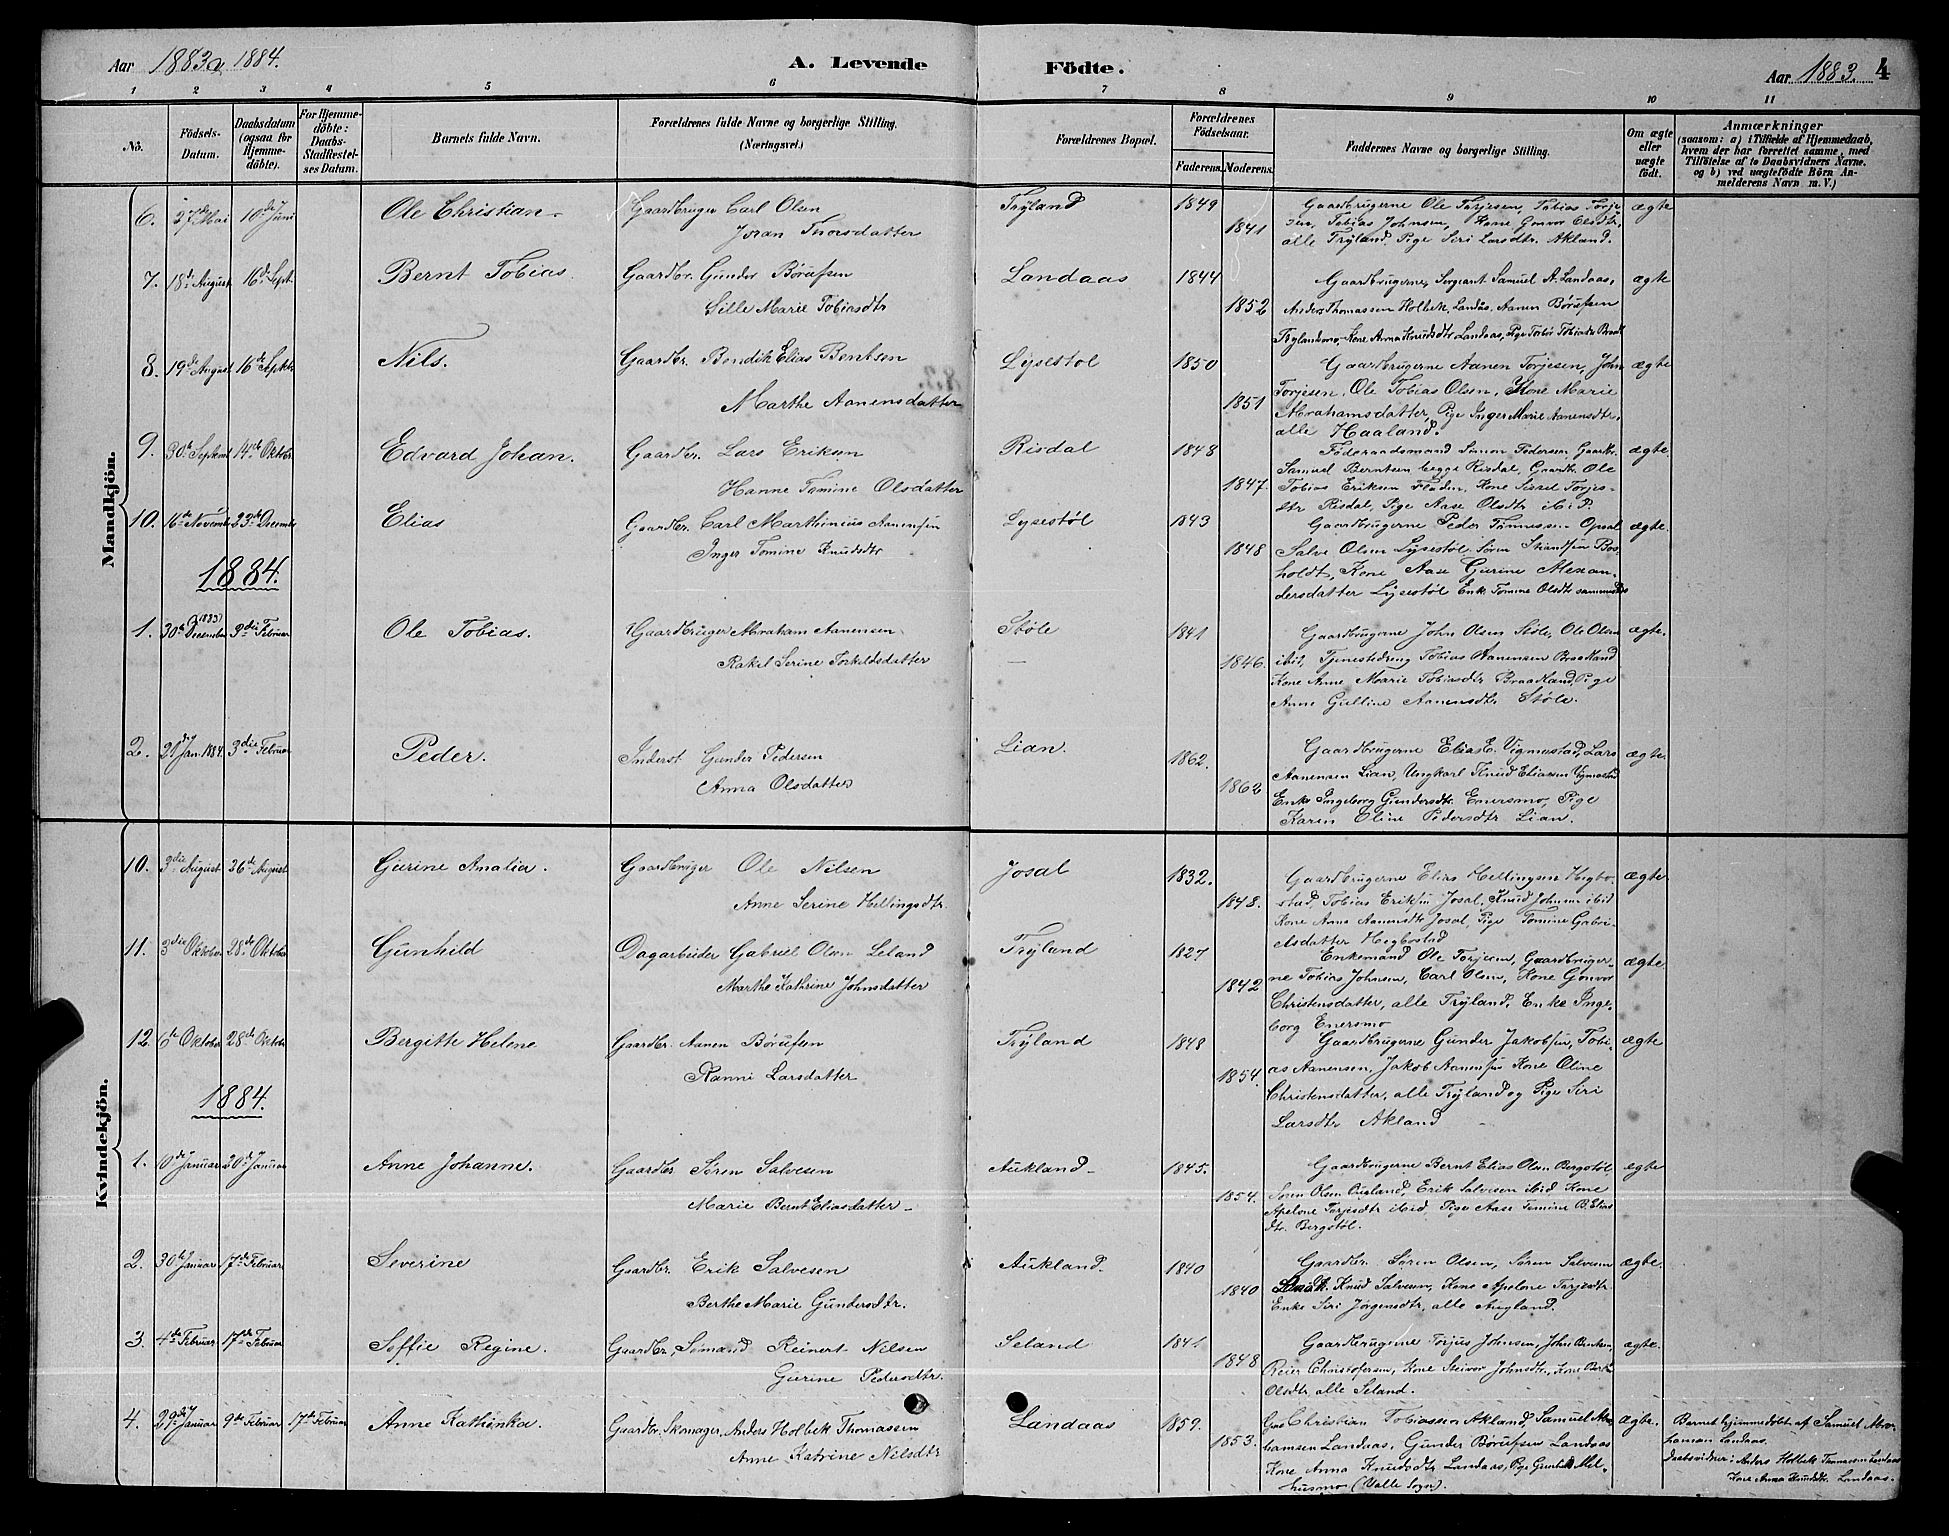 Aar 1883 & 1884.
A. Levende Födte.
Aar 1883. 4
1 2 3 4 5 6 7 8 9 10 11
No. Födsels-Datum. Daabsdatum (ogsaa for Hjemmedöbte). For Hjemmedöbte: Daabs-Stadfestelses Datum. Barnets fulde Navn. Forældrenes fulde Navne og borgerlige Stilling. (Næringsvei.) Forældrenes Bopæl. Forældrenes Födselsaar. Faderens. Moderens. Faddernes Navne og borgerlige Stilling. Om ægte eller uægte födt. Anmærkninger (saasom: a) i Tilfælde af Hjemmedaab, hvem der har forrettet samme, med Tilföielse af to Daabsvidners Navne. og b) ved uægtefödte Börn Anmelderens Navn m. V.)
Mandkjön.
6. 27de Mai 10de Juni Ole Christian Gaardbruger Carl Olsen Tryland 1849 Gaardbrugerne Ole Torjesen, Tobias Torje- ægte
Joran Thorsdatter 1841 sen, Tobias Johnsen, Kone Gonvor Olsdtr,
alle Tryland. Pige Siri Larsdtr. Akland.
7. 18de August 16de Sept. Bernt Tobias. Gaardbr. Gunder Børufsen Landaas 1844 Gaardbrugerne, Sergeant Samuel A. Landaas, ægte
Sille Marie Tobiasdtr 1852 Anders Thomassen Holbek, Landaas, Aanen Børufsen
Trylandsmo, Kone Anna Knudsdtr Landaas, Pige
8. 19de August 16de Septbr Nils. Gaardbr. Bendik Elias Bentsen Lysestøl 1850 Gaardbrugerne Aanen Torjesen, John ægte
Marthe Aanensdatter 1851 Torjesen, Ole Tobias Olsen, Kone Marie
Abrahamsdatter, Pige Inger Marie Aanensdtr,
alle Haaland.
9. 30te Septemb 14de Oktbr. Edvard Johan. Gaardbr. Lars Eriksen Risdal 1848 Föderaadsmand Simon Pedersen, Gaardbr. ægte
Hanne Tomine Olsdatter 1847. Samuel Berntsen begge Risdal, Gaardbr. Ole
Tobias Eriksen Fladen, Kone Sissel Torjes-
dtr Risdal, Pige Aase Olsdtr ibid.
10. 16de Novemb 23de Decemb Elias Gaardbr. Carl Marthinius Aanensen Lysestøl 1843 Gaardbrugerne Peder Opsal ægte
Inger Tomine Knudsdtr 1848 Salve Olsen Lysestøl, Søren Bos-
holdt, Kone Aase Gurine Alexan-
dersdatter Lysestøl Enke Tomine Olsdtr sammesteds
1884.
1. 30te December (1883) 3die Februar Ole Tobias. Gaardbruger Abraham Aanensen Støle 1841 Gaardbrugerne John Olsen Støle, Ole Olsen ægte.
Rakel Serine Torkildsdatter — 1846. ibid, Tjenestedreng Tobias Aanensen Braadland
Kone Anne Marie Tobiasdtr Braadland, Pige
Anne Gulline Aanensdtr Støle.
2. 21de Jan. 1884. 3die Februar Peder. Inderst Gunder Pedersen Lian. 1862. Gaardbrugerne Elias E. Vigmostad, Lars ægte
Anna Olsdatter 1862 Aanensen Lian, Ungkarl Knud Eliassen Vigmostad
Enke Ingeborg Gundersdtr. Enersmo, Pige
Karen Oline Pedersdtr Lian.
Kvindekjön.
10. 3die August 26de August Gurine Amalia. Gaardbruger Ole Nilsen Josal 1832. Gaardbrugerne Elias Hellingsen Hegbo- ægte
Anne Serine Hellingsdtr. 1848. stad, Tobias Eriksen Josal, Knud Johnsen ibid
Kone Anna Aanensdtr Josal, Pige Tomine Gabri-
elsdatter Hegbostad
11. 3die Oktober 28de Oktober Gunhild Dagarbeider Gabriel Olsen Leland Tryland 1827 Enkemand Ole Torjesen, Gaardbruger- ægte
Marthe Kathrine Johnsdatter 1842 ne Tobias Johnsen, Carl Olsen, Kone Gonvor
Christensdatter, alle Tryland, Enke Inge-
borg Enersmo
12. 6te Oktober 28de Oktober Bergitte Helene Gaardbr. Aanen Børufsen Tryland 1848 Gaardbrugerne Gunder Jakobsen, Tobi- ægte
Ranni Larsdatter 1854. as Aanensen, Jakob Aanensen Kone Oline
Christensdatter, alle Tryland og Pige Siri
Larsdtr Akland
1884.
1. 6te Januar 20de Januar Anne Johanne. Gaardbr. Søren Salvesen Aukland 1845. Gaardbrugerne Bernt Elias Olsen Bergstøl ægte
Marie Bernt Eliasdatter 1854. Søren Olsen Augland, Erik Salvesen ibid Kone
Apelone Torjesdtr ibid Pige Aase Tomine B. Elias
dtr. Bergstøl.
2. 30te Januar 17de Februar Severine Gaardbr. Erik Salvesen Aukland. 1840 Gaardbr. Søren Olsen, Søren Salvesen ægte.
Berthe Marie Gundersdtr. 1840 Knud Salvesen, Kone Apelone Torjesdtr
Enke Siri Jørgensdtr, alle Augland.
3. 4de Februar 17de Februar Soffie Regine. Gaardbr. Sømand Reinert Nilsen Seland 1841 Gaardbrugerne Torjus Johnsen, John Bentsen, ægte.
Gurine Pedersdtr. 1848 Reier Christofersen, Kone Steivor Johnsdtr, Kone Berte
Olsdtr alle Seland.
4. 29de Januar 9de Februar 17de Februar Anne Kathinka. Gaardbr. Skomager Anders Holbek Thomassen Landaas 1859. Christian Tobiassen Akland, Samuel Abra- ægte. Barnet hjemmedøbt af Samuel Abra-
Anne Katrine Nilsdtr 1853. hamsen Landaas, Gunder Børufsen Landaas hamsen Landaas.
Kone Anna Knudsdtr Landaas, Pige Gunhild Mel- Daabsvidner: Anders Holbek Thomassen Landaas
husmo (Valle Sogn). Kone Anna Knudsdtr. Landaas.